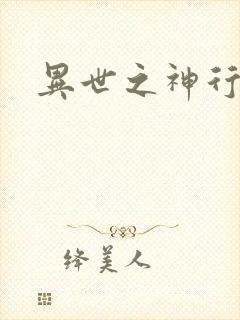 異世之神行
绛美人